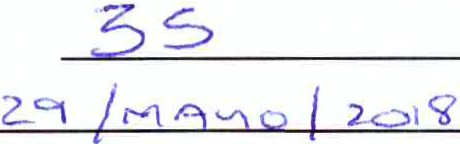 35
29/MAYO/2018